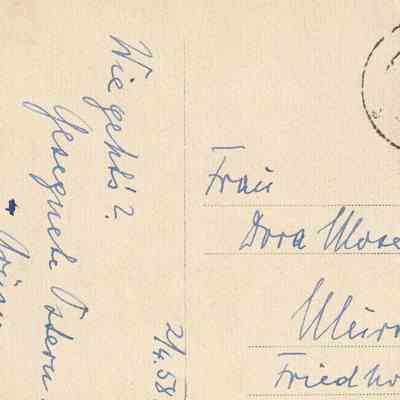 Wie geht's?
Gesegnete Ostern
2/4.58
Frau
Dora Mose
Murr
Friedho